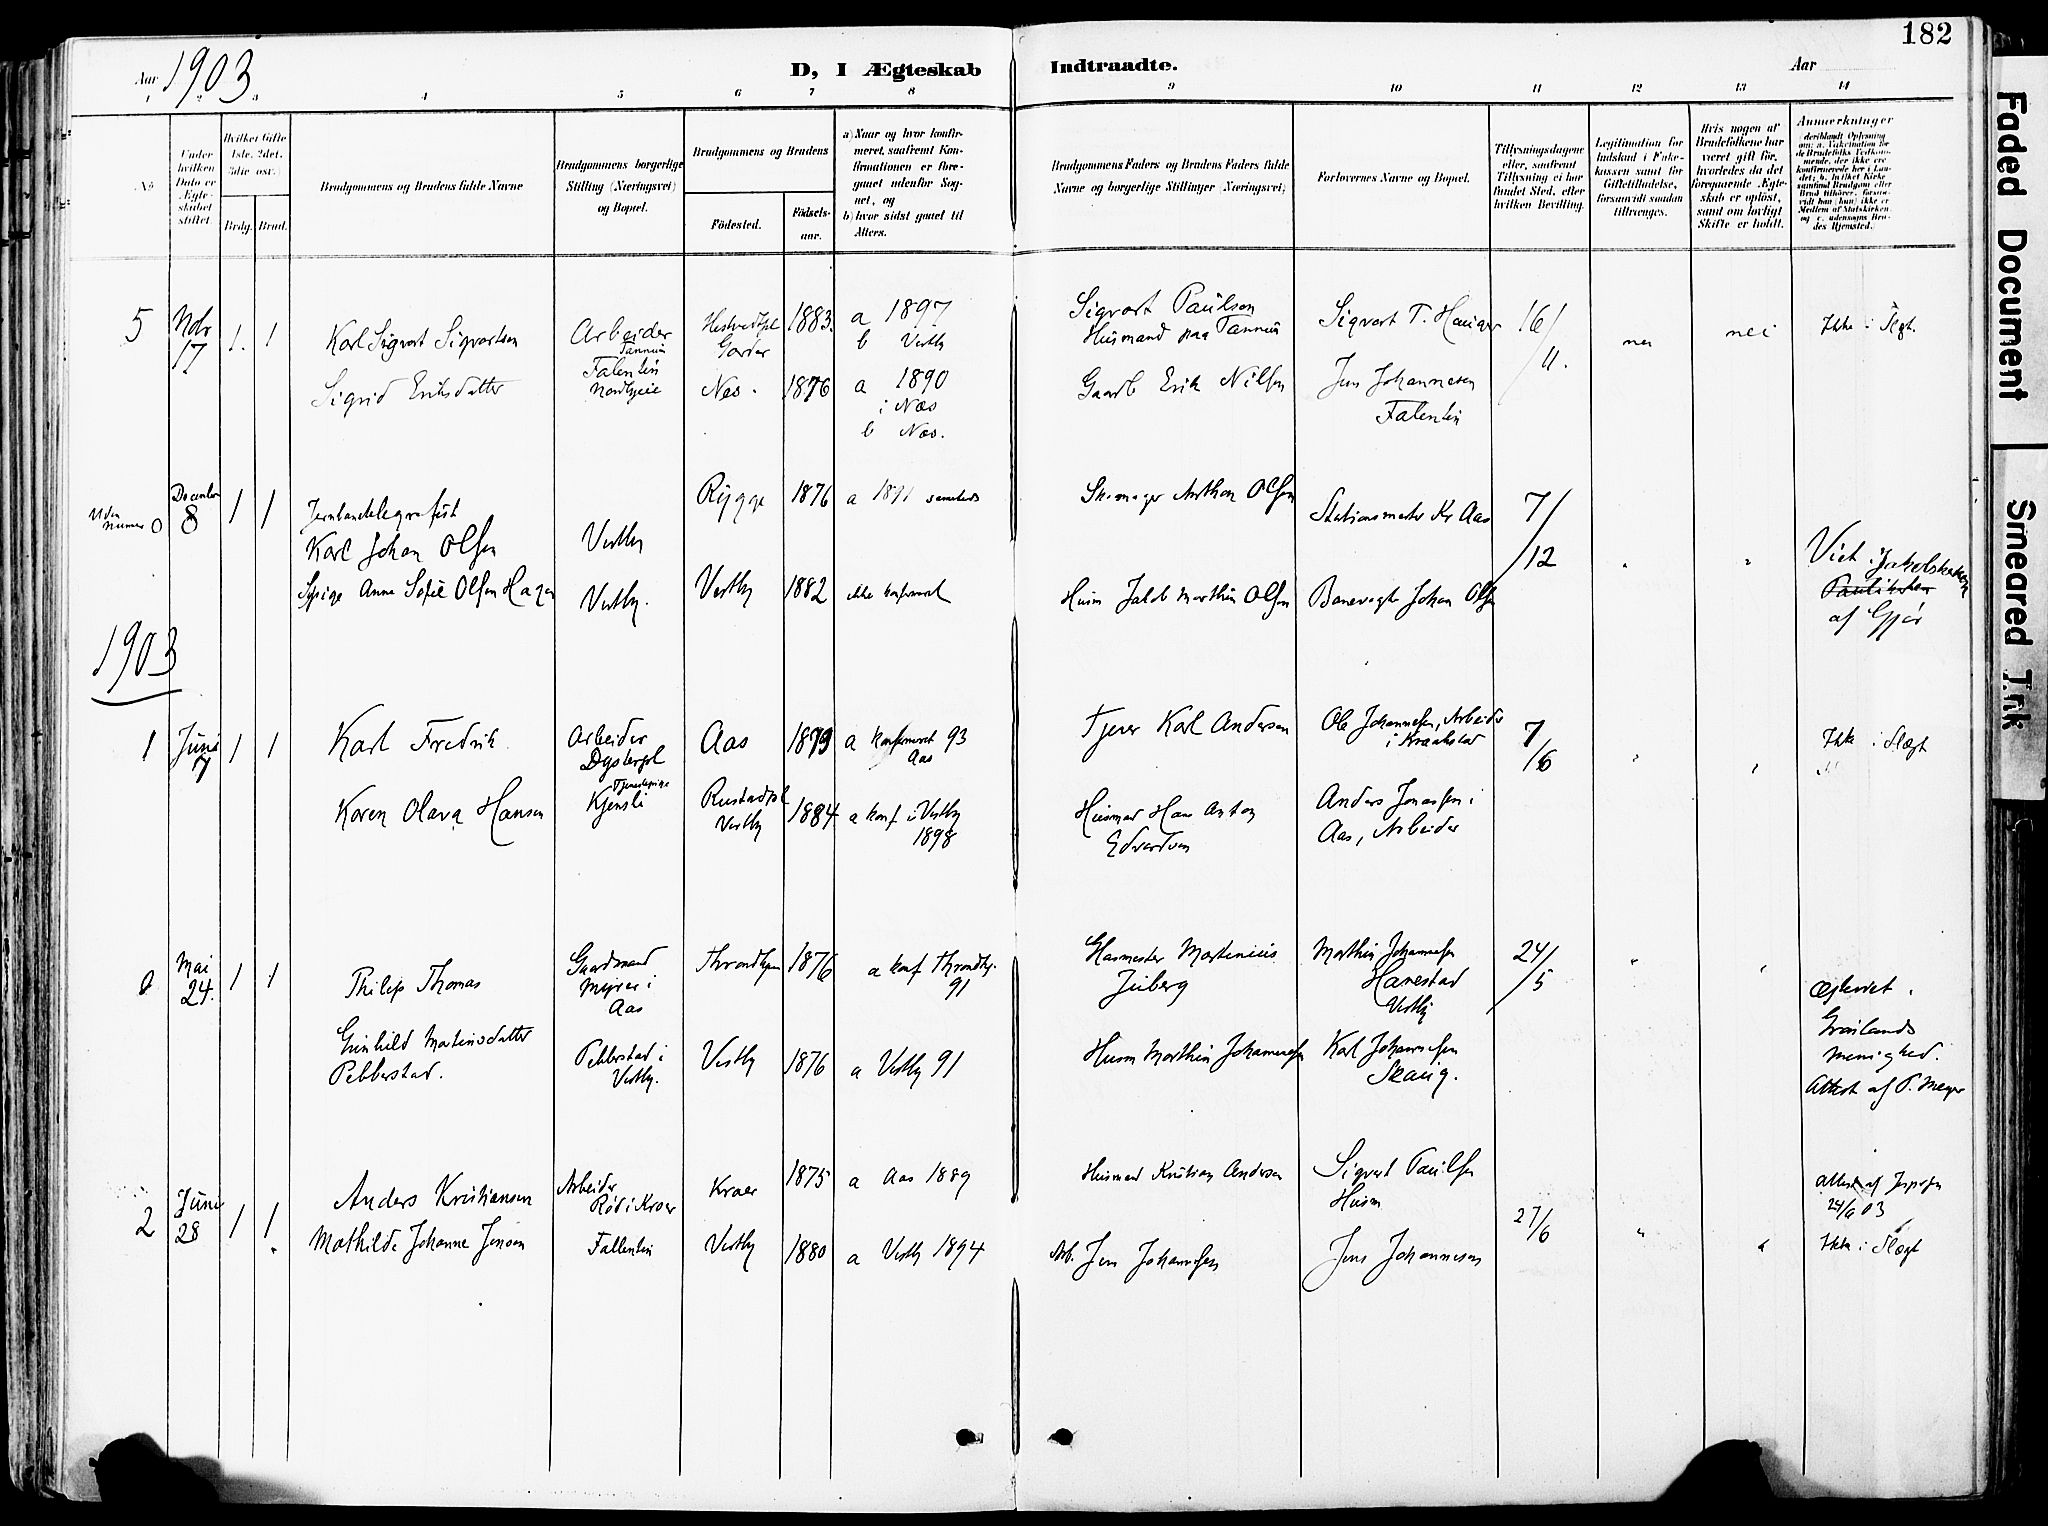 182
Aar 1903
D, I Ægteskab Indtraadte.
Aar
1 2 3 4 5 6 7 8 9 10 11 12 13 14
No
Under hvilken Dato er Ægteskabet stiftet.
Hvilket Gifte 1ste, 2det, 3die osv.)
Brdg. Brud.
Brudgommens og Brudens fulde Navne
Brudgommens borgerlige Stilling (Næringsvei) og Bopæl.
Brudgommens og Brudens
Födested.
Födsels-aar.
a) Naar og hvor konfirmeret, saafremt Konfirmationen er foregaaet udenfor Sognet, og
b) hvor sidst gaaet til Alters.
Brudgommens Faders og Brudens Faders fulde Navne og borgerlige Stillinger (Næringsvei)
Forlovernes Navne og Bopæl.
Tillysningsdagene eller, saafremt Tillysning ei har fundet Sted, efter hvilken Bevilling.
Legitimation for Indskud i Enkekassen samt for Giftetilladelse, forsaavidt saadan tiltrænges.
Hvis nogen af Brudefolkene har været gift før, hvorledes da det foregaaende Ægteskab er opløst, samt om lovligt Skifte er holdt.
Anmerkninger
5
Nov 17
1. 1
Karl Sigvart Sigvartsen
Arbeider
Tannum
Falentin
Garder
1883.
a 1897
b Vestby
Sigvart Paulson
Husmand paa Tannum
Sigvart T. Hauger
16/11.
nei
nei
Ikke i Slegt.
Sigrid Eriksdatter
Nordbyeie
Nes.
1876
a 1890
i Næs
b Næs.
Gaardb Erik Nilsen
Jens Johannesen
Falentin
Uden numer 0
December 8
1 1
Jernbanetelegrafist
Karl Johan Olsen
Vestby
Rygge
1876
a 1891
Skomager Anthon Olsen
Stationsmester Kr Aas
7/12
Viet i Jakobskirken
Paulikirken
af Gjør
Anne Sofie Olsen Hagen
Vestby.
Vestby
1882
ikke konfirmeret
Husm Jakob Marthin Olsen
Banevogte Johan Olsen
1903
1
Juni 7
1 1
Karl Fredrik
Arbeider
Dysterpl
Aas
1879
a konfirmeret 93
Aas
Karl Anderson
Ole Johannesen, Arbeider
i Kraakstad
7/6
Ikke i Slægt
Karen Olava Hansen
Tjenestepige
Kjensli
Rustadpl
Vestby
1884
a konf i Vestby
1898
Husmand Hans Anton
Edvardsen
Anders Jonassen i
Aas, Arbeider
0
Mai 24.
1 1
Philip Thomas
Gaardmand
Myrer i
Aas
Throndhjem
1876
a konf Throndhj.
91
Martinius
Juberg
Marthin Johannesen
Hanestad
Vestby
24/5
Gunhild Martinsdatter
Pebberstad.
Pebberstad i
Vestby.
Vestby
1876
a Vestby 91
Husm Marthin Johannesen
Karl Johannesen
Skaug.
Grønlands
menighed.
Attest af P. Meyer
2
Juni 28
1 1
Anders Kristiansen
Arbeider
Röd i Kroer
Kroer
1875
a Aas 1889
Husmand Kristian Andersen
Sigvart Paulsen
Husm
27/6
Attest af Jespersen
24/6 03
Mathilde Johanne Jensen
Fallentin
Vestby
1880
a Vestby 1894
Arb. Jens Johannesen
Jens Johannesen
Ikke i Slægt
Faded Document
Smeared Ink